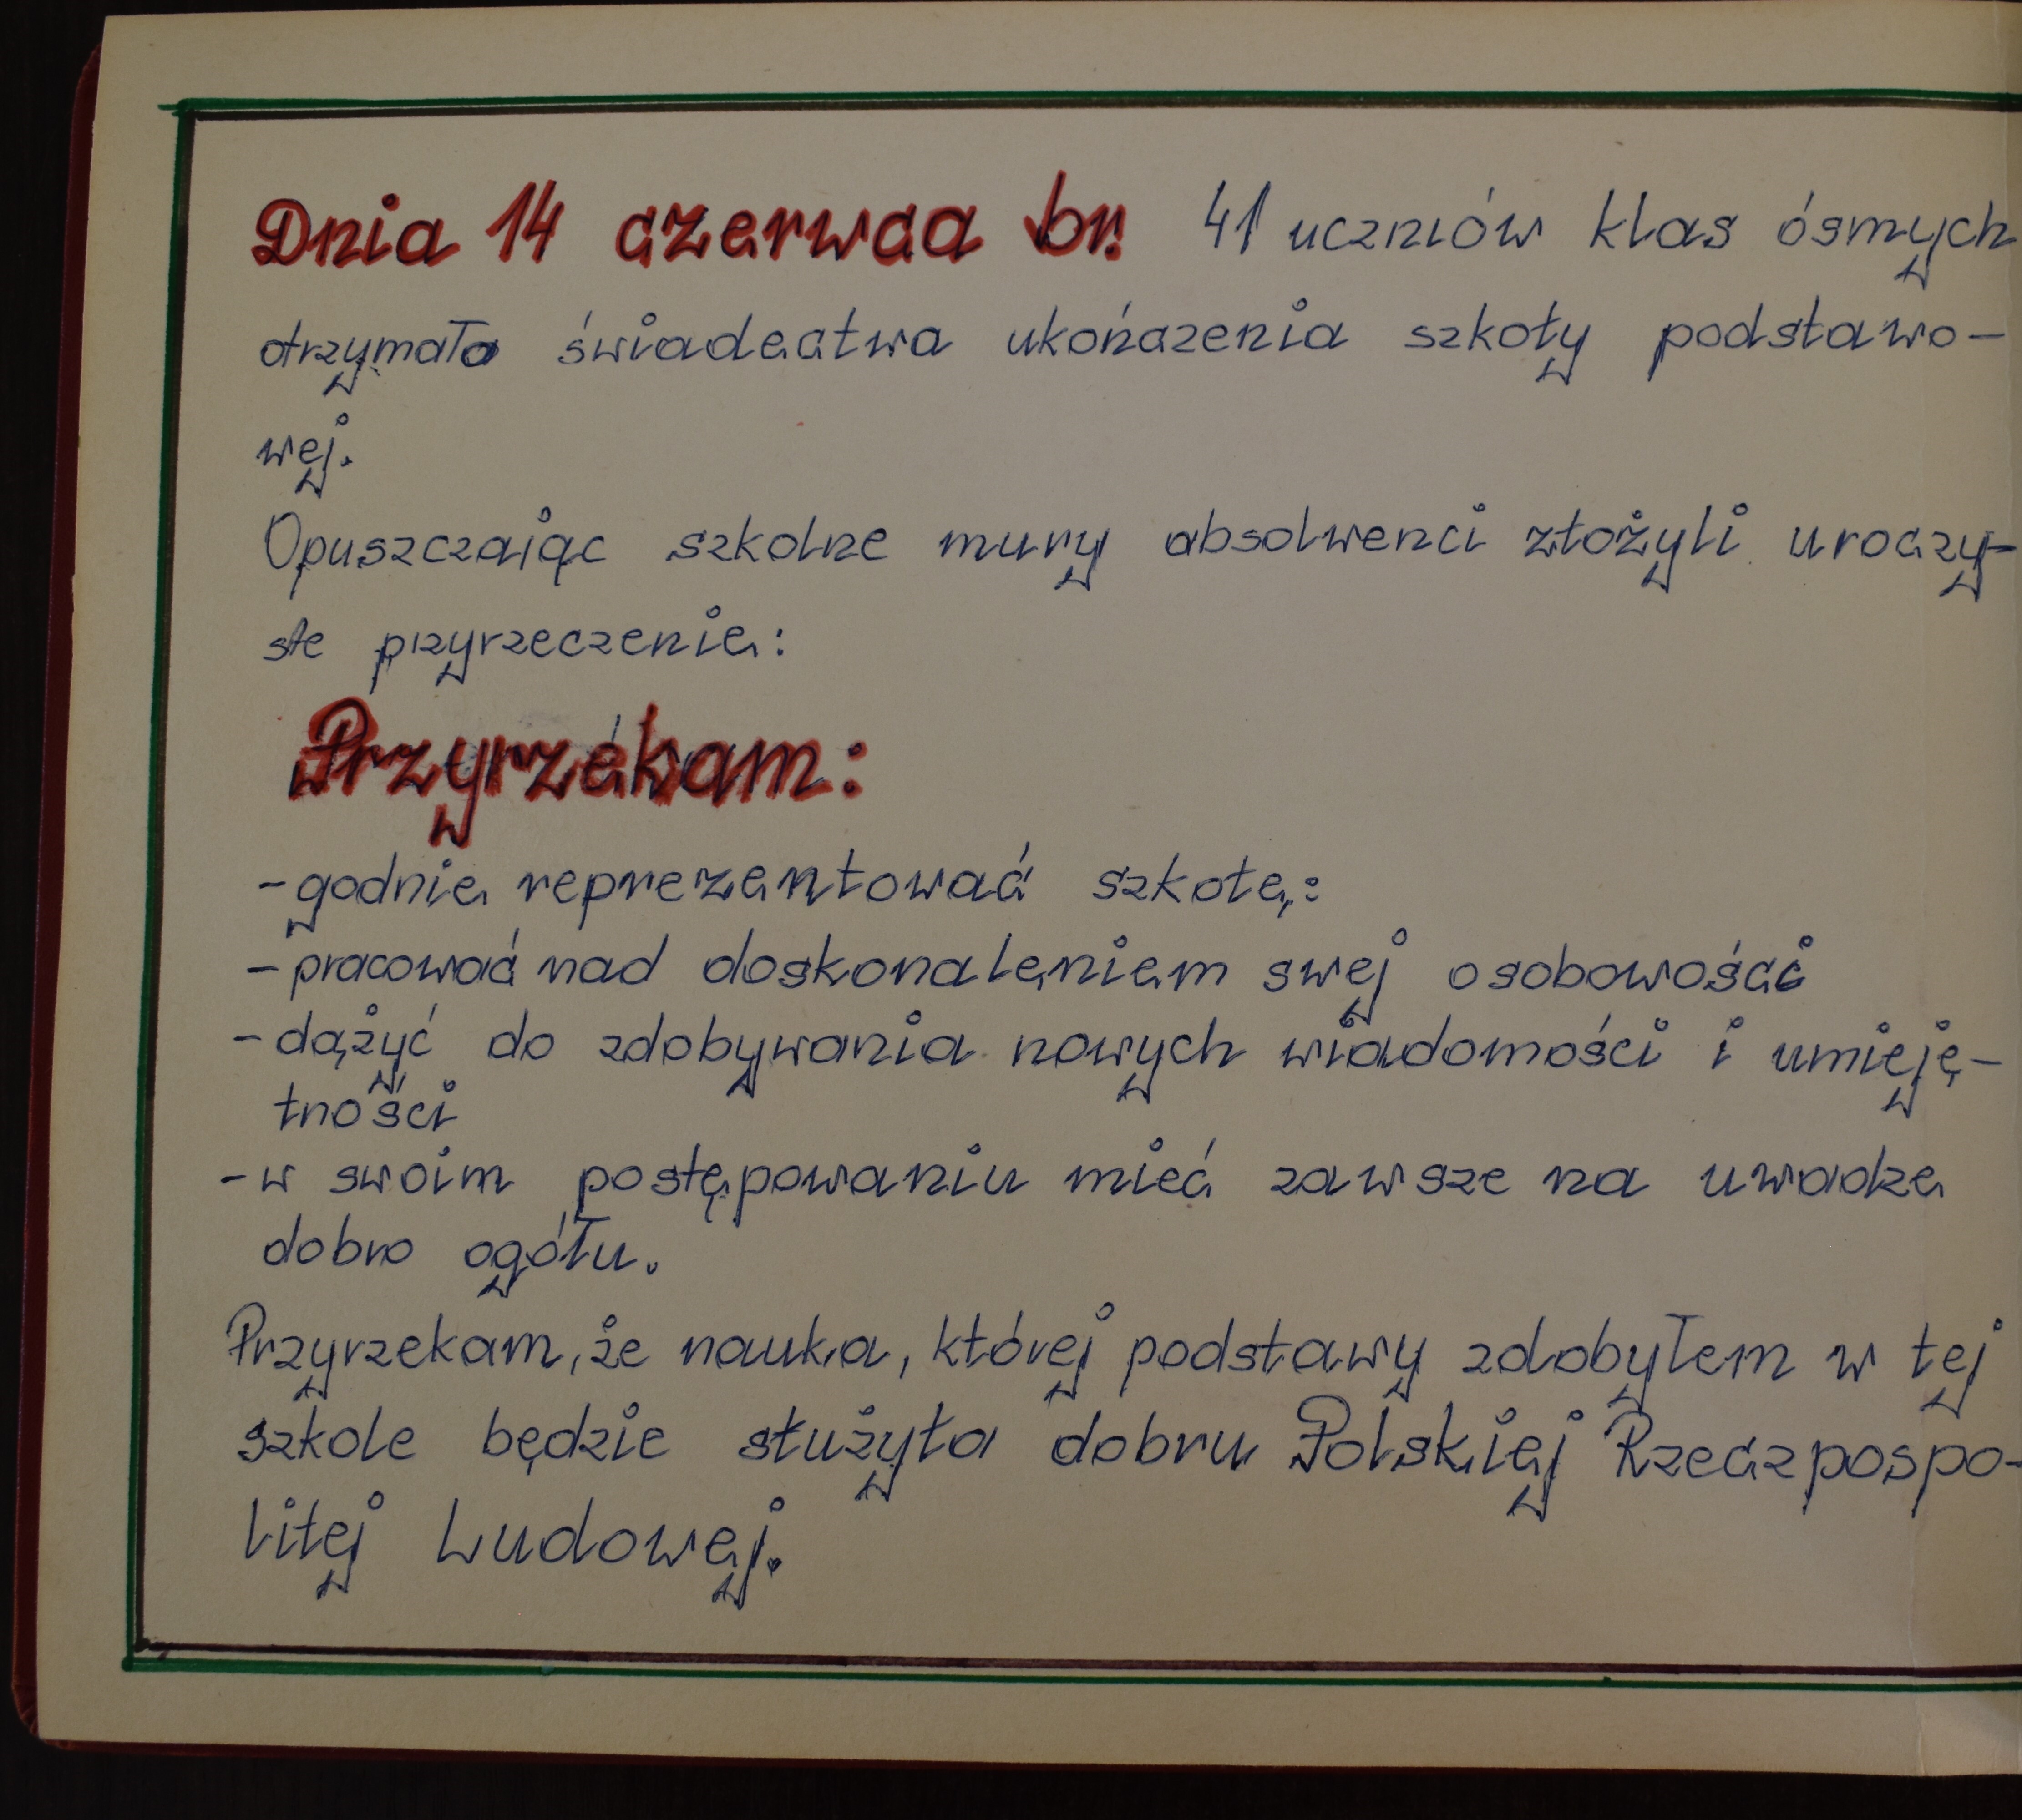 Dnia 14 czerwca br. 41 uczniów klas ósmych
otrzymało świadectwa ukończenia szkoły podstawo-
wej.
Opuszczając szkolne mury absolwenci złożyli uroczy-
ste przyrzeczenie:
Przyrzekam:
- godnie reprezentować szkołę:
- pracować nad doskonaleniem swej osobowości
- dążyć do zdobywania nowych wiadomości i umieję-
tności
- w swoim postępowaniu mieć zawsze na uwadze
dobro ogółu.
Przyrzekam, że nauka, której podstawy zdobyłem w tej
szkole będzie służyła dobru Polskiej Rzeczpospo-
litej Ludowej.